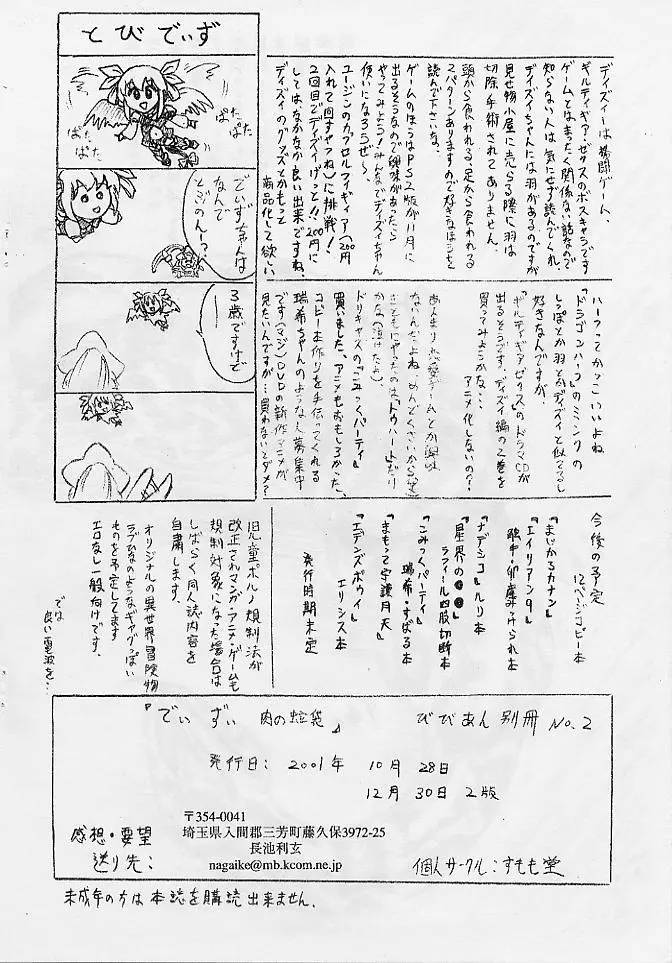 とびでぃず
ぱた
ぱた
ぱた
ぱた
でぃずちゃんは
なんで
とぶのん!?
3歳ですけど
ディズィーは格闘ゲーム、
ギルティギア・ゼクスのボスキャラです
ゲームとはまったく関係ない話なので
知らない人は気にせず読んでくれ、
ディズィちゃんには羽があるのですが
見せ物小屋に売らる際に羽は
切除手術されてありません。
頭から食われると足から食われる
2パターンありますので好きなほうを
読んで下さいな。
ゲームのほうはPS2版が11月に
出るそうなので興味があったら
やってみよう!みんなでディズィちゃん
使いになろうぜ〜
ユージンのカプセルフィギュア(200円
入れて回すやつね)に挑戦!
2回目でディズィげっと!!200円に
してはなかなか良い出来ですね、
ディズィのグッズとかもって
商品化して欲しい。
ハーフってかっこいいよね
『ドラゴンハーフ』のミンクの
しっぽとか羽とかディズィと似てるし
好きなんですが、
『ギルティギアゼクス』のドラマCDが
出るそうです、ディズィ編の2巻を
買ってみようかな・・・
アニメ化しないの?
あんまり恋愛ゲームとか興味
ないんだよね、めんどくさいから(笑)
まともにやったのは『トゥハート』だけ
かな(泣けたよ)、
ドリキャスの『こみっくパーティ』
買いました、アニメもおもしろかった。
コピー本作りを手伝ってくれる
瑞希ちゃんのような人募集中
です(マジ)DVDの新作アニメが
見たいんですが…買わないとダメ?
今後の予定
12ページコピー本
『まじかるカナン』
『エイリアン9』
『ナデシコ』ルリ本
『星界の●●』
ラフィール四股切断本
『こみっくパーティ』
瑞希・すばる本
『まもって守護月天』
『エデンズボゥイ』
エリシス本
発行時期未定
児童ポルノ規制法が
改正されマンガ・アニメ・ゲームも
規制対象になった場合は
しばらく同人誌内容を
自粛します。
オリジナルの異世界冒険物
ラブひなのようなギャグっぽい
ものを予定してます
エロなし一般向けです。
では
良い電波を…
『でぃずぃ 肉の 袋』 びびあん別冊 No.2
発行日: 2001年 10月 28日
12月 30日 2版
〒354-0041
埼玉県入間郡三芳町藤久保3972-25
長池利玄
nagaike@mb.kcom.ne.jp
感想・要望
送り先:
個人サークル:すもも堂
未成年の方は本誌を購読出来ません.